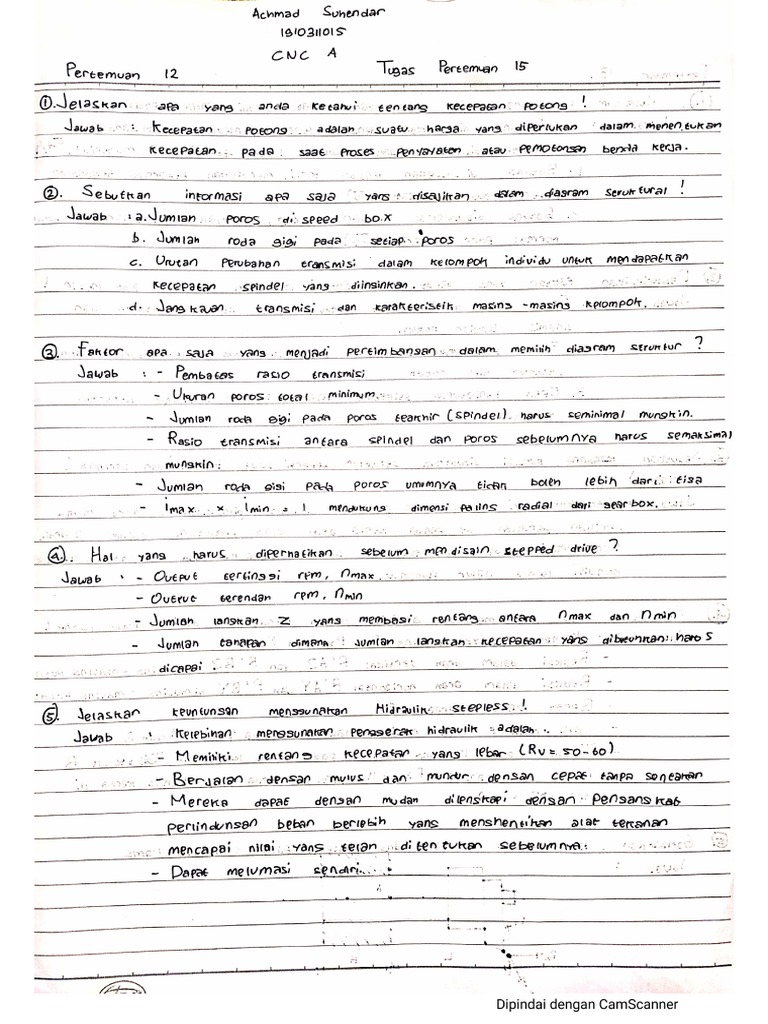 Achmad Suhendar
1910311015
CNC A
Pertemuan 12
Tugas Pertemuan 15
①. Jelaskan apa yang anda ketahui tentang kecepatan potong !
Jawab : Kecepatan potong adalah suatu harga yang diperlukan dalam menentukan
kecepatan pada saat proses penyayatan atau pemotongan benda kerja.
②. Sebutkan informasi apa saja yang disajikan dalam diagram struktural !
Jawab : a. Jumlah poros di speed box
b. Jumlah roda gigi pada setiap poros
c. Urutan perubahan transmisi dalam kelompok individu untuk mendapatkan
kecepatan spindel yang diinginkan.
d. Jangkauan transmisi dan karakteristik masing-masing kelompok.
③. Faktor apa saja yang menjadi pertimbangan dalam memilih diagram struktur ?
Jawab : - Pembatas rasio transmisi
- Ukuran poros total minimum.
- Jumlah roda gigi pada poros terakhir (spindel) harus seminimal mungkin.
- Rasio transmisi antara spindel dan poros sebelumnya harus semaksimal
mungkin.
- Jumlah roda gigi pada poros umumnya tidak boleh lebih dari tiga
- imax x imin = 1 mendukung dimensi paling radial dari gear box.
④. Hal yang harus diperhatikan sebelum mendisain stepped drive ?
Jawab : - Output tertinggi rpm, nmax
- Output terendah rpm, nmin
- Jumlah langkah Z yang membagi rentang antara nmax dan nmin
- Jumlah tahapan dimana jumlah langkah kecepatan yang dibutuhkan harus
dicapai.
⑤. Jelaskan keuntungan menggunakan Hidraulik stepless !
Jawab : Kelebihan menggunakan penggerak hidraulik adalah.
- Memiliki rentang kecepatan yang lebar (Rv = 50-60)
- Berjalan dengan mulus dan mundur dengan cepat tanpa sentakan
- Mereka dapat dengan mudah dilengkapi dengan perangkat
perlindungan beban berlebih yang menghentikan alat tekanan
mencapai nilai yang telah ditentukan sebelumnya.
- Dapat melumasi sendiri.
Dipindai dengan CamScanner